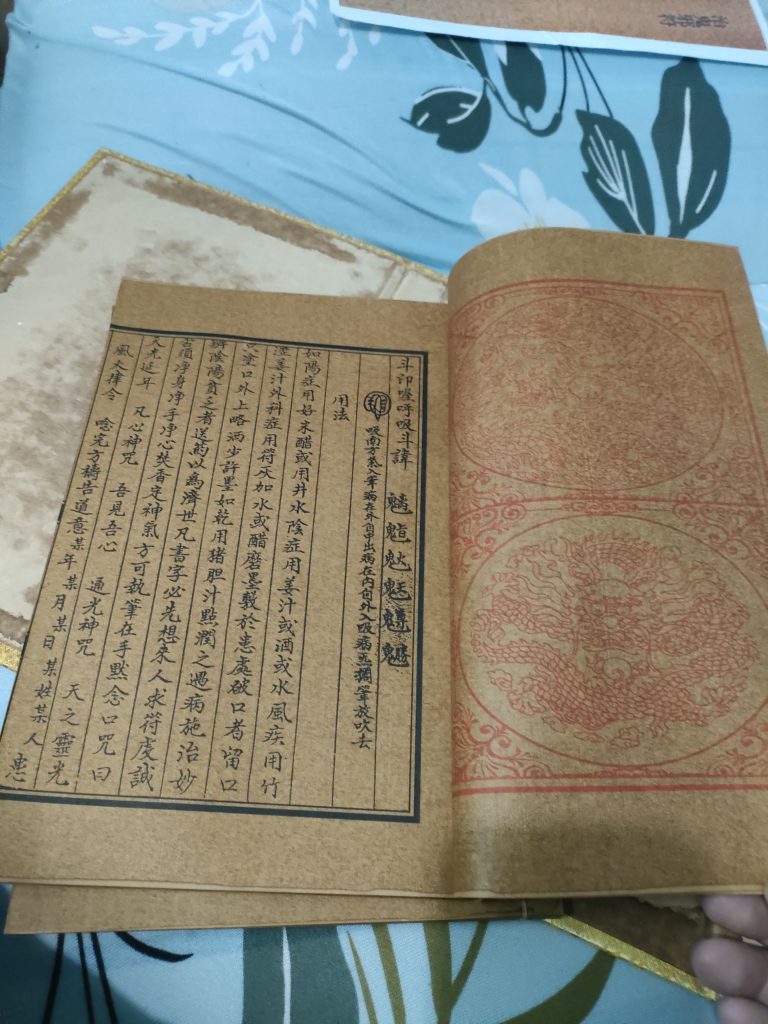 斗印喹呼吸斗諱
吸南方炁入筆病在外自中出病在内自外入吸病炁擱筆放吹去
用法
如陽症用好米醋或用井水陰症用姜汁或酒或水風疾用竹
瀝姜汁外科症用符灰加水或醋磨墨敷於患處破口者留口
只塗口外上略洒少許墨如乾用猪胆汁點潤之遇病施治妙
辨陰陽貧乏者送葯以為濟世凡書字必先想來人求符虔誠
須净身净手净心焚香定神氣方可執筆在手默念口咒曰
天光延年 凡心神咒 吾見吾心 通光神咒 天之靈光
風火律令 唸完方禱告道意某年某月某日某姓某人患